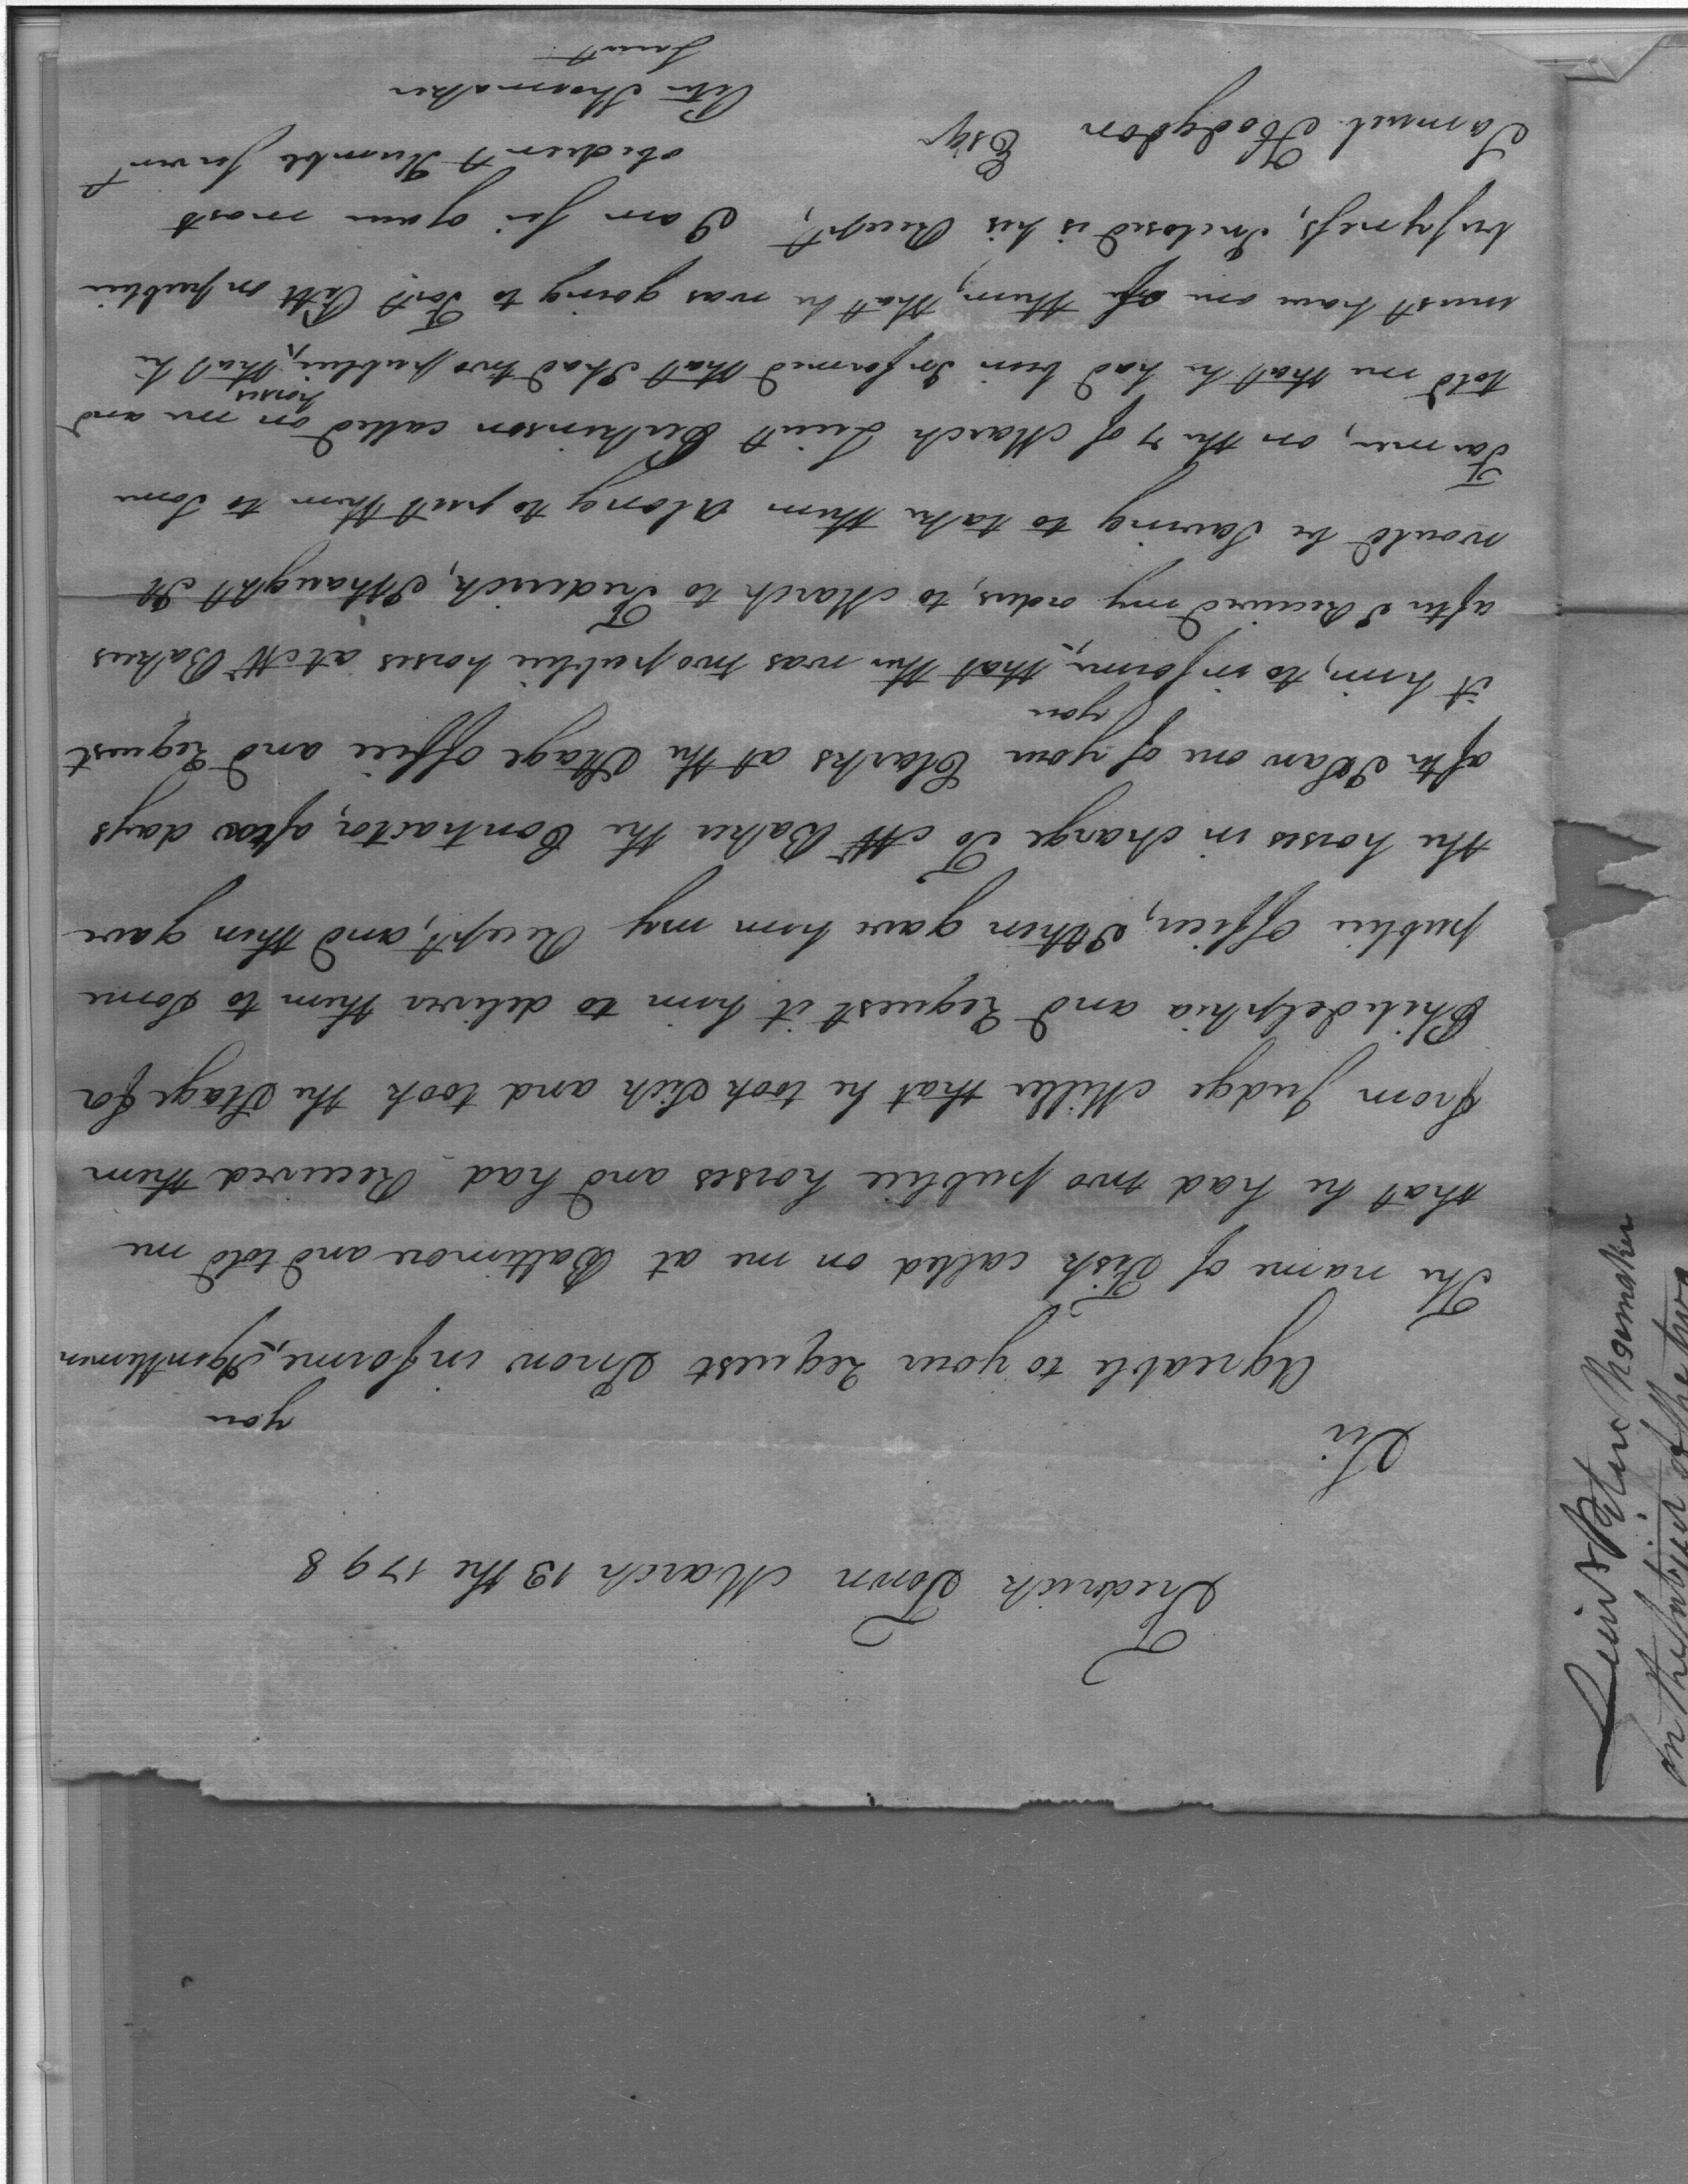 Frederick Town March 13 the 1798
Sir
Agreable to your request I now informe you, A gentlemen
The name of Fish called on me at Baltimore and told me
that he had two publie horses and had Received them
from Judge Miller that he took Sick and took the Stage for
Philidelphia and request it him to deliver them to Some
publie officer, I then gave him my Recept, and then gave
the horses in charge To Mr Baker the Contractor, a few days
after I Saw one of your Clarks at the Stage office and request
it him, to informe you, that ther was two publie horses at Mr Bakers
after I Received my orders, to March to Frederick, I thaught It
would be Saving to take them along to put them to Some
Farmer, on the 7 of March Lieut Dickinson called on me and
told me that he had been Informed that I had two publie horses, that he
must have one of them, that he was going to Fort Pitt on publie
busyness, Inclosed is his Recept, I am Sir your most
obedient Humble Servent
Samuel Hodgdon Esqr
Peter Shoemaker
Lieut
Lieut Peter Shoemaker
on the subject of the two